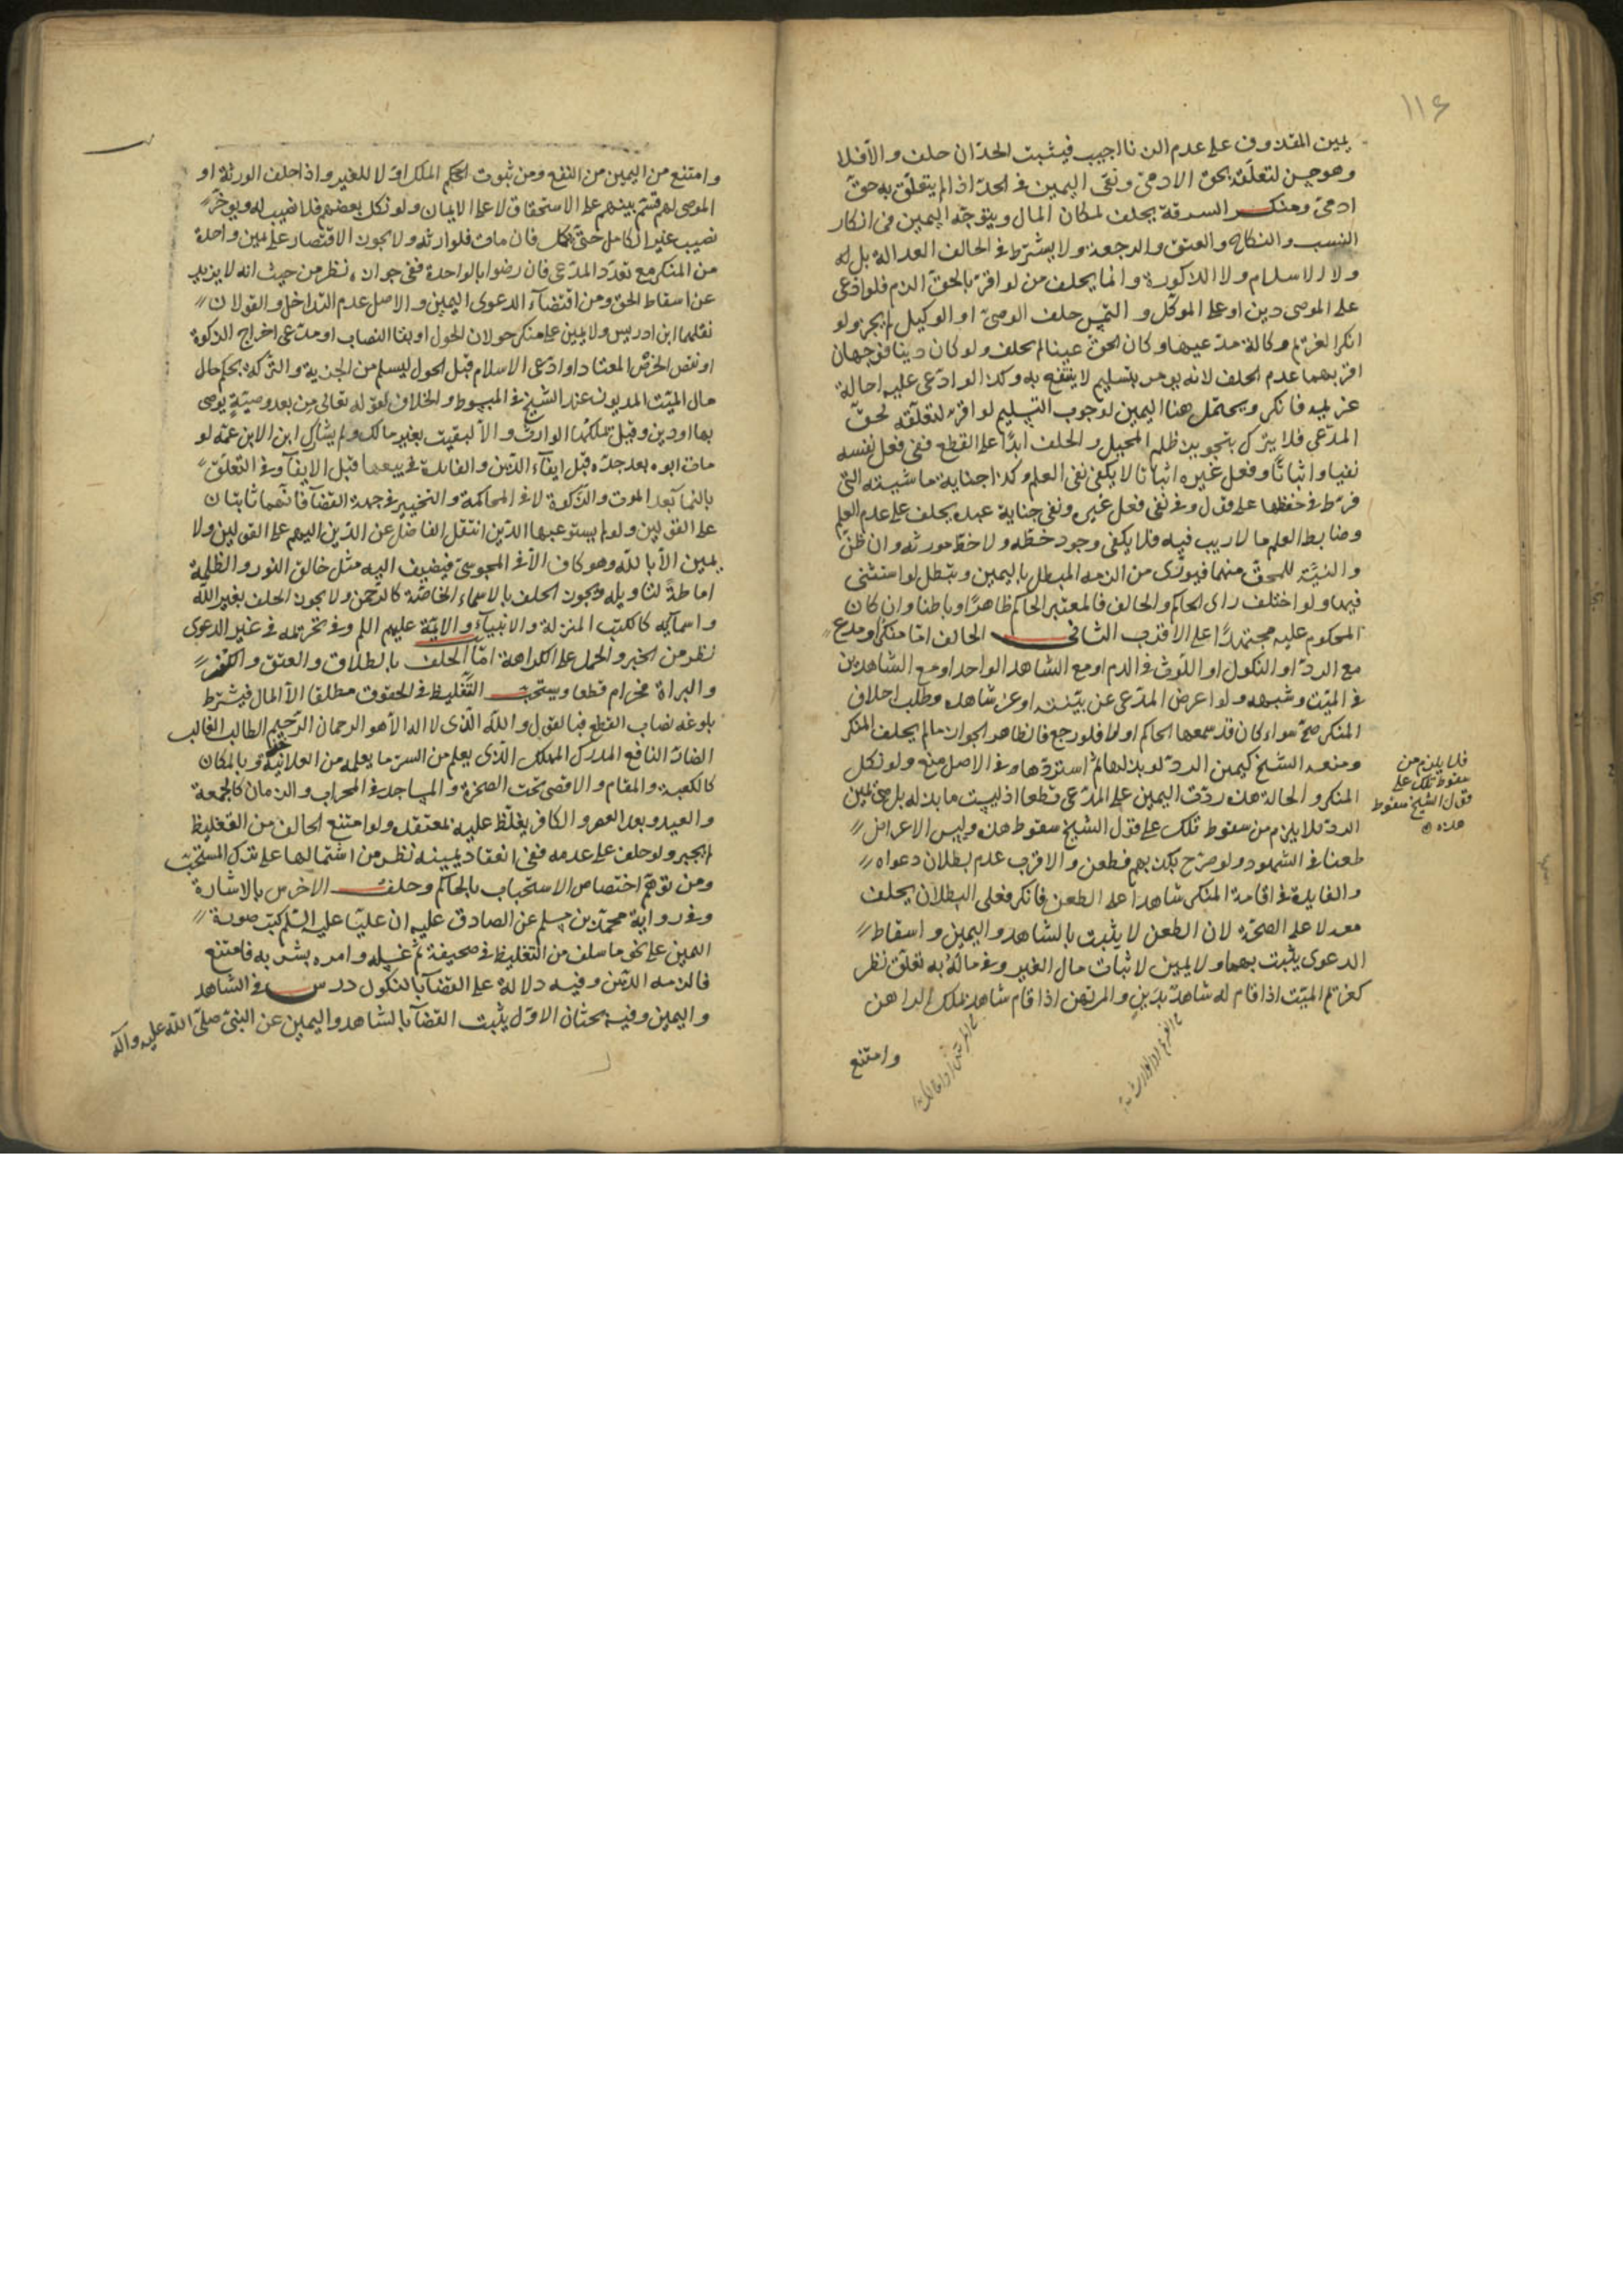 ١١٤
يمين المقذوف على عدم الزنا اجيب فيثبت الحد ان حلف والا فلا
وهو حسن لتعلقه بحق الادمى ونفى اليمين فى الحد اذا لم يتعلق به حق
ادمى ومنكر السرقة يحلف لمكان المال ويتوجه اليمين فى انكار
النسب والنكاح والعتق والرجعة ولا يشترط فى الحالف العدالة بل له
ولا الاسلام ولا الذكورة وانما يحلف من لو اقر بالحق الزم فلو ادعى
على الموصى دين او على الموكل والتمس حلف الوصى او الوكيل لم يجز ولو
انكر الغريم وكالة مدعيها وكان الحق عينا لم يحلف ولو كان دينا فوجهان
اقربهما عدم الحلف لانه يومر بتسليم لا ينتفع به وكذا لو ادعى عليه احالة
غريمه فانكر ويحتمل هنا اليمين لوجوب التسليم لو اقر لتعلقه لحق
المدعى فلا يترك بتجويز ظلم المحيل والحلف ابدا على القطع ففى فعل نفسه
نفيا واثباتا وفعل غيره اثباتا لا يكفى نفى العلم وكذا جناية ماشيته التى
فرط فى حفظها على قول وفى نفى فعل غيره ونفى جناية عبده يحلف على عدم العلم
وضابط العلم ما لا ريب فيه فلا يكفى وجود خطه ولا خط مورثه وان ظن
والنية للمحق منهما فيورى من الزمه المبطل باليمين وتبطل لو استثنى
فيها ولو اختلف راى الحاكم والحالف فالمعتبر الحاكم ظاهرا وباطنا وان كان
المحكوم عليه مجتهدا على الاقرب الثانى الحالف اما منكر او مدع
مع الرد او النكول او اللوث فى الدم او مع الشاهد الواحد او مع الشاهدين
فى الميت وشبهه ولو اعرض المدعى عن بينته او عن شاهده وطلب احلاف
المنكر صح سواء كان قد سمعها الحاكم او لا فلو رجع فالظاهر الجواز ما لم يحلف المنكر
ومنعه الشيخ كيمين الرد لو بذلها ثم استردها وفى الاصل منع ولو نكل
المنكر والحالة هذه ردت اليمين على المدعى قطعا اذ ليست ما بذله بل هى يمين
الرد فلا يلزم من سقوط تلك على قول الشيخ سقوط هذه وليس الاعراض
طعنا فى الشهود ولو صرح بكذبهم فطعن والاقرب عدم بطلان دعواه
والفايدة فى اقامة المنكر شاهدا على الطعن فانكر فعلى البطلان يحلف
معه لا على الصحة لان الطعن لا يثبت بالشاهد واليمين واسقاط
الدعوى يثبت بهما ولا يمين لاثبات مال الغير وفى ماله به تعلق نظر
كغريم الميت اذا قام له شاهد بدين والمرتهن اذا قام شاهد بملك الراهن
وامتنع
فلا يلزم من
سقوط تلك على
قول الشيخ سقوط
هذه
وامتنع من اليمين من النفع ومن ثبوت الحكم الملك اولا للغير واذا حلف الورثة او
الموصى لهم قسم بينهم على الاستحقاق لا على الايمان ولو نكل بعضهم فلا نصيب له ويوخر
نصيب غير الكامل حتى يكمل فان مات فلوارثه ولا يجوز الاقتصار على يمين واحدة
من المنكر مع تعدد المدعى فان رضوا بالواحدة ففى جوازه نظر من حيث انه لا يزيد
عن اسقاط الحق ومن اقتضاء الدعوى اليمين والاصل عدم التداخل والقولان
نقلهما ابن ادريس ولا يمين على منكر حولان الحول او بقا النصاب او مدعى اخراج الزكوة
او نقص الخرص المعتاد او ادعى الاسلام قبل الحول ليسلم من الجزية والتركة بحكم مال
مال الميت المديون عند الشيخ فى المبسوط والخلاف لقوله تعالى من بعد وصية يوصى
بها او دين وقيل تملكها الوارث والا لبقيت بغير مالك ولم يشارك ابن الابن عمه لو
مات ابوه بعد جده قبل ايفاء الدين والفايدة فى بيعها قبل الايفا وفى التعلق
بالنما بعد الموت والزكوة لا فى المحاكمة والتخيير فى جهة القضا فانهما ثابتان
على القولين ولو لم يستوعبها الدين انتقل الفاضل عن الدين اليهم على القولين ولا
يمين الا بالله وهو كاف الا فى المجوسى فيضيف اليه مثل خالق النور والظلمة
اماطة لتاويله ويجوز الحلف بالاسماء الخاصة كالرحمن ولا يجوز الحلف بغير الله
واسمائه كالكتب المنزلة والانبياء والائمة عليهم السلم وفى تحريمه فى غير الدعوى
نظر من الخبر والحمل على الكراهة اما الحلف بالطلاق والعتق والكفر
والبراة فحرام قطعا ويستحب التغليظ فى الحقوق مطلقا الا المال فيشترط
بلوغه نصاب القطع فبالقول والله الذى لا اله الا هو الرحمان الرحيم الطالب الغالب
الضار النافع المدرك المهلك الذى يعلم من السر ما يعلمه من العلانية وبالمكان
كالكعبة والمقام والاقصى تحت الصخرة والمساجد فى المحراب والزمان كالجمعة
والعيد وبعد العصر والكافر يغلظ عليه بمعتقده ولو امتنع الحالف من التغليظ
لم يجبر ولو حلف على عدمه ففى انعقاد يمينه نظر من اشتمالها على ترك المستحب
ومن توهم اختصاص الاستحباب بالحاكم وحلف الاخرس بالاشارة
وفى رواية محمد بن مسلم عن الصادق عليه ان عليا عليه السلم كتب صورة
اليمين على نحو ما سلف من التغليظ فى صحيفة ثم غسله وامره بشربه فامتنع
فالزمه الدين وفيه دلالة على القضا بالنكول درس فى الشاهد
واليمين وفيه بحثان الاول يثبت القضا بالشاهد واليمين عن النبى صلى الله عليه وآله